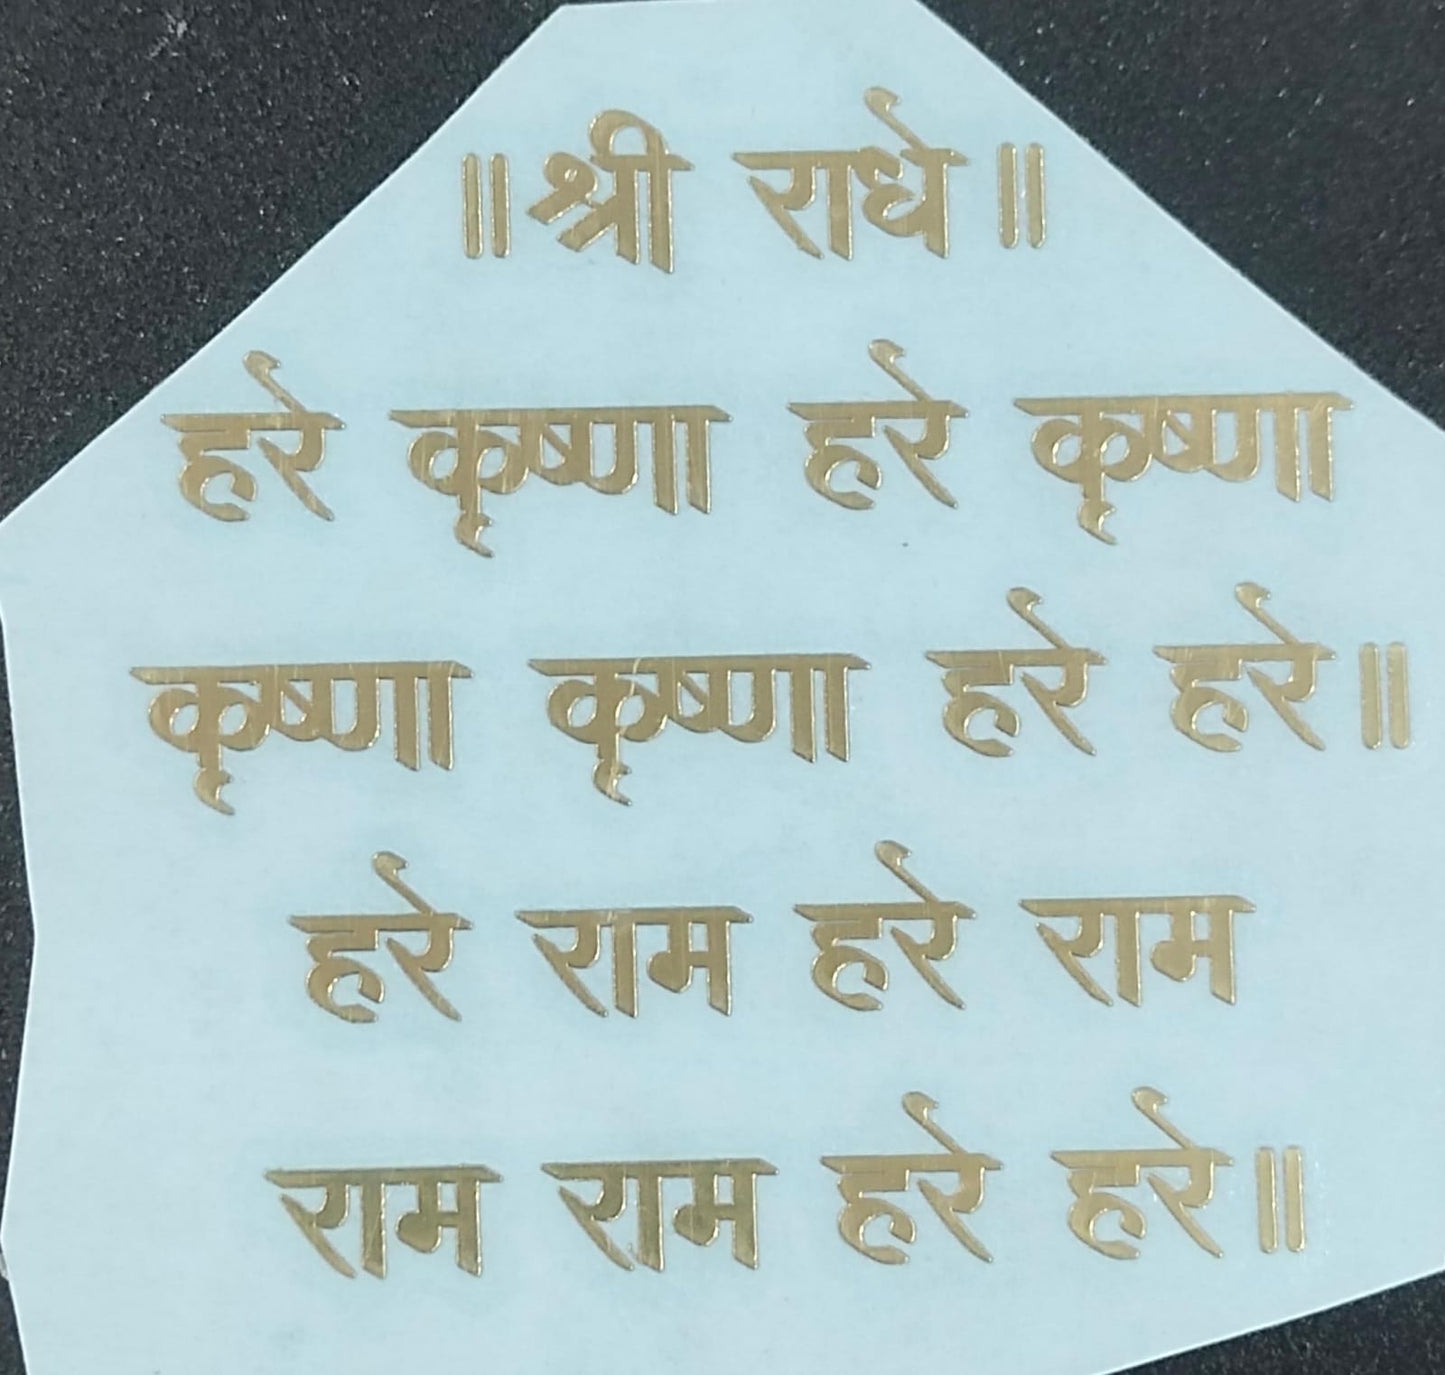 ॥ श्री राधे ॥
हरे कृष्णा हरे कृष्णा
कृष्णा कृष्णा हरे हरे॥
हरे राम हरे राम
राम राम हरे हरे॥